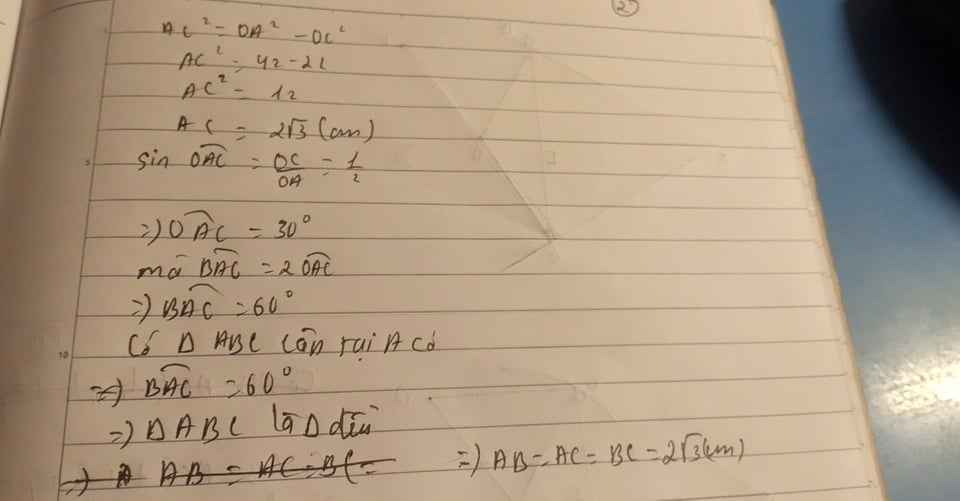 23
AC² = OA² - OC²
AC² = 4² - 2²
AC² = 12
AC = 2√3 (cm)
sin OAC = OC/OA = 1/2
5
=> OAC = 30°
mà BAC = 2 OAC
=> BAC = 60°
Có Δ ABC cân tại A có
10
=> BAC = 60°
=> Δ ABC là Δ đều
=> A AB = AC = BC =
=> AB = AC = BC = 2√3 (cm)